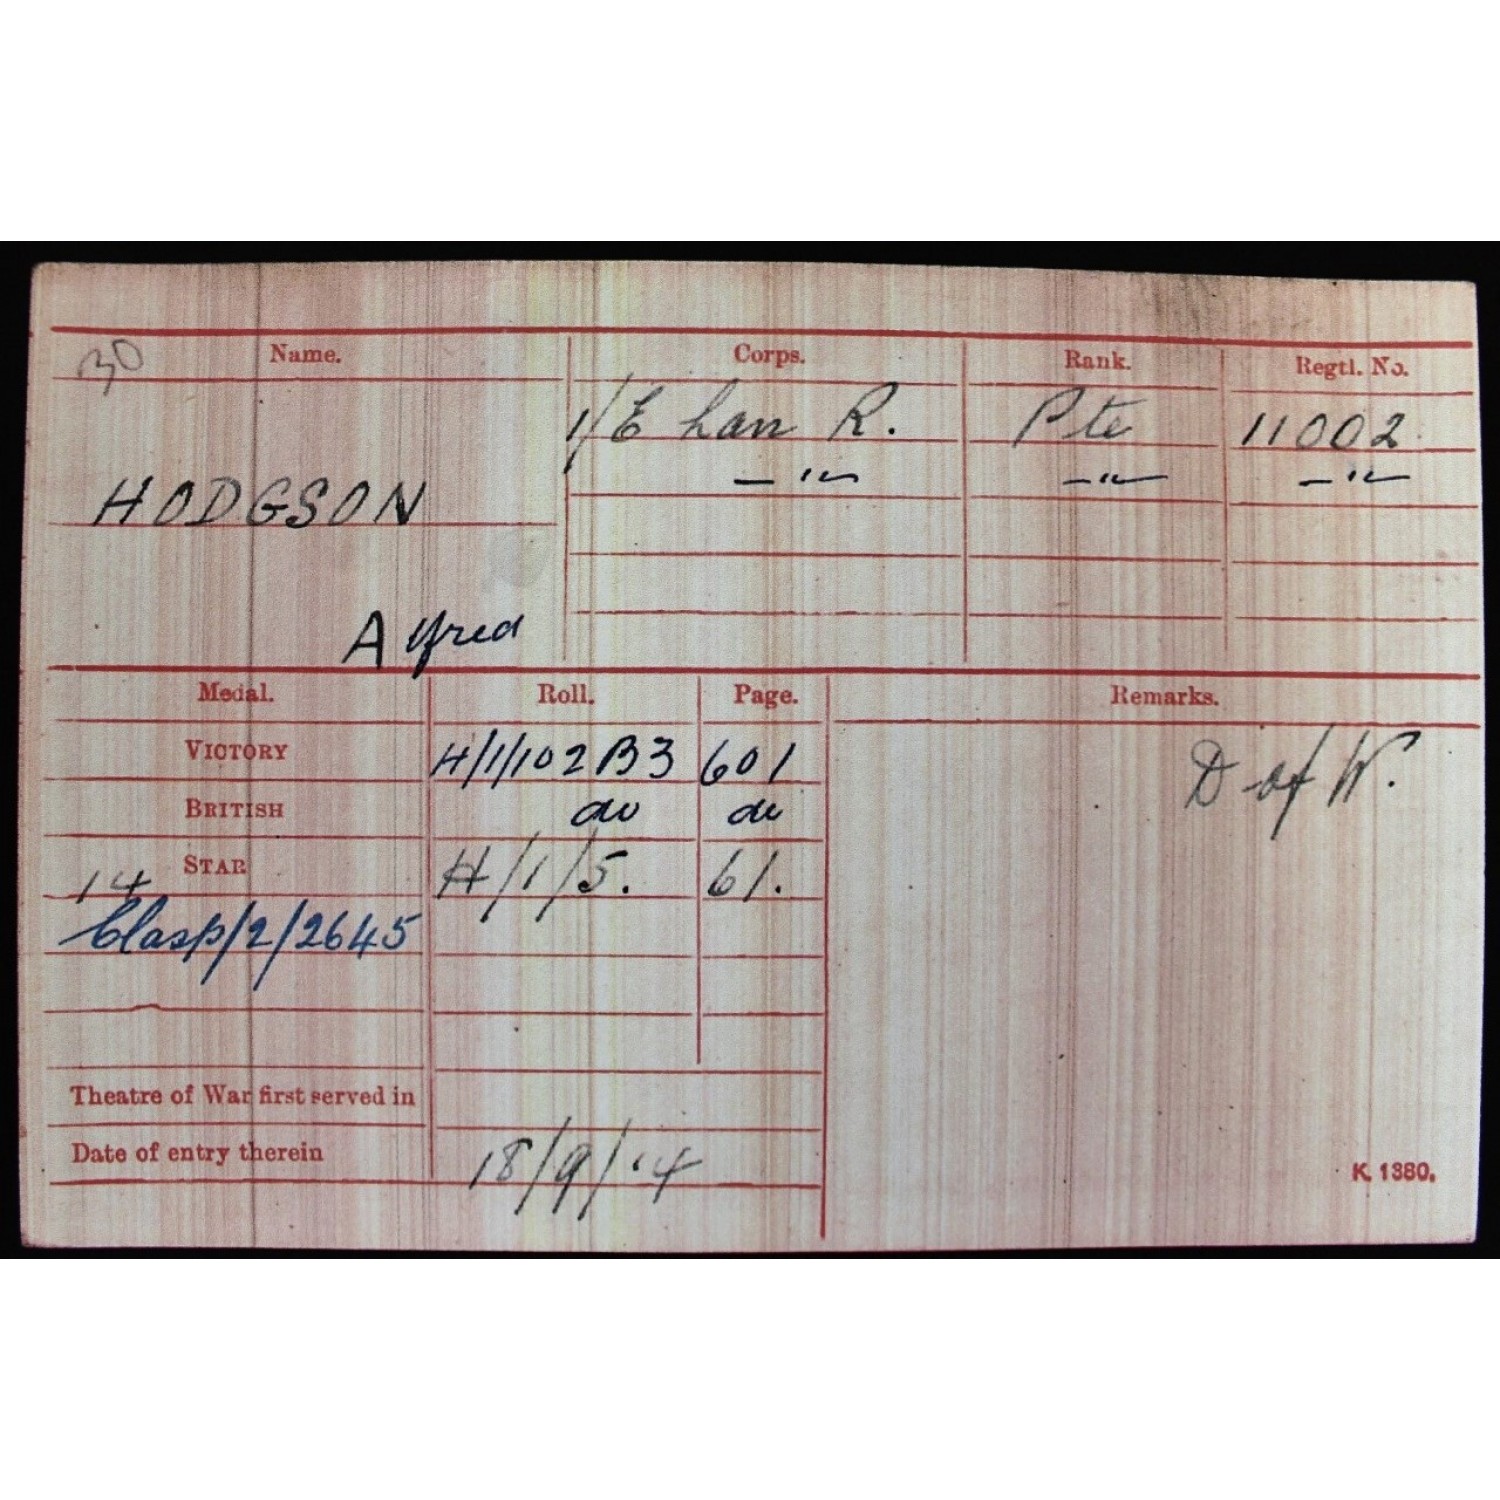 30
Name. Corps. Rank. Regtl. No.
1/E Lan R. Pte 11002.
— " — — " — — " —
HODGSON
Alfred
Medal. Roll. Page. Remarks.
VICTORY H/1/102 B3 601 D of W.
BRITISH do do
14 STAR H/1/5. 61.
Clasp/2/2645
Theatre of War first served in
Date of entry therein 18/9/14
K. 1380.